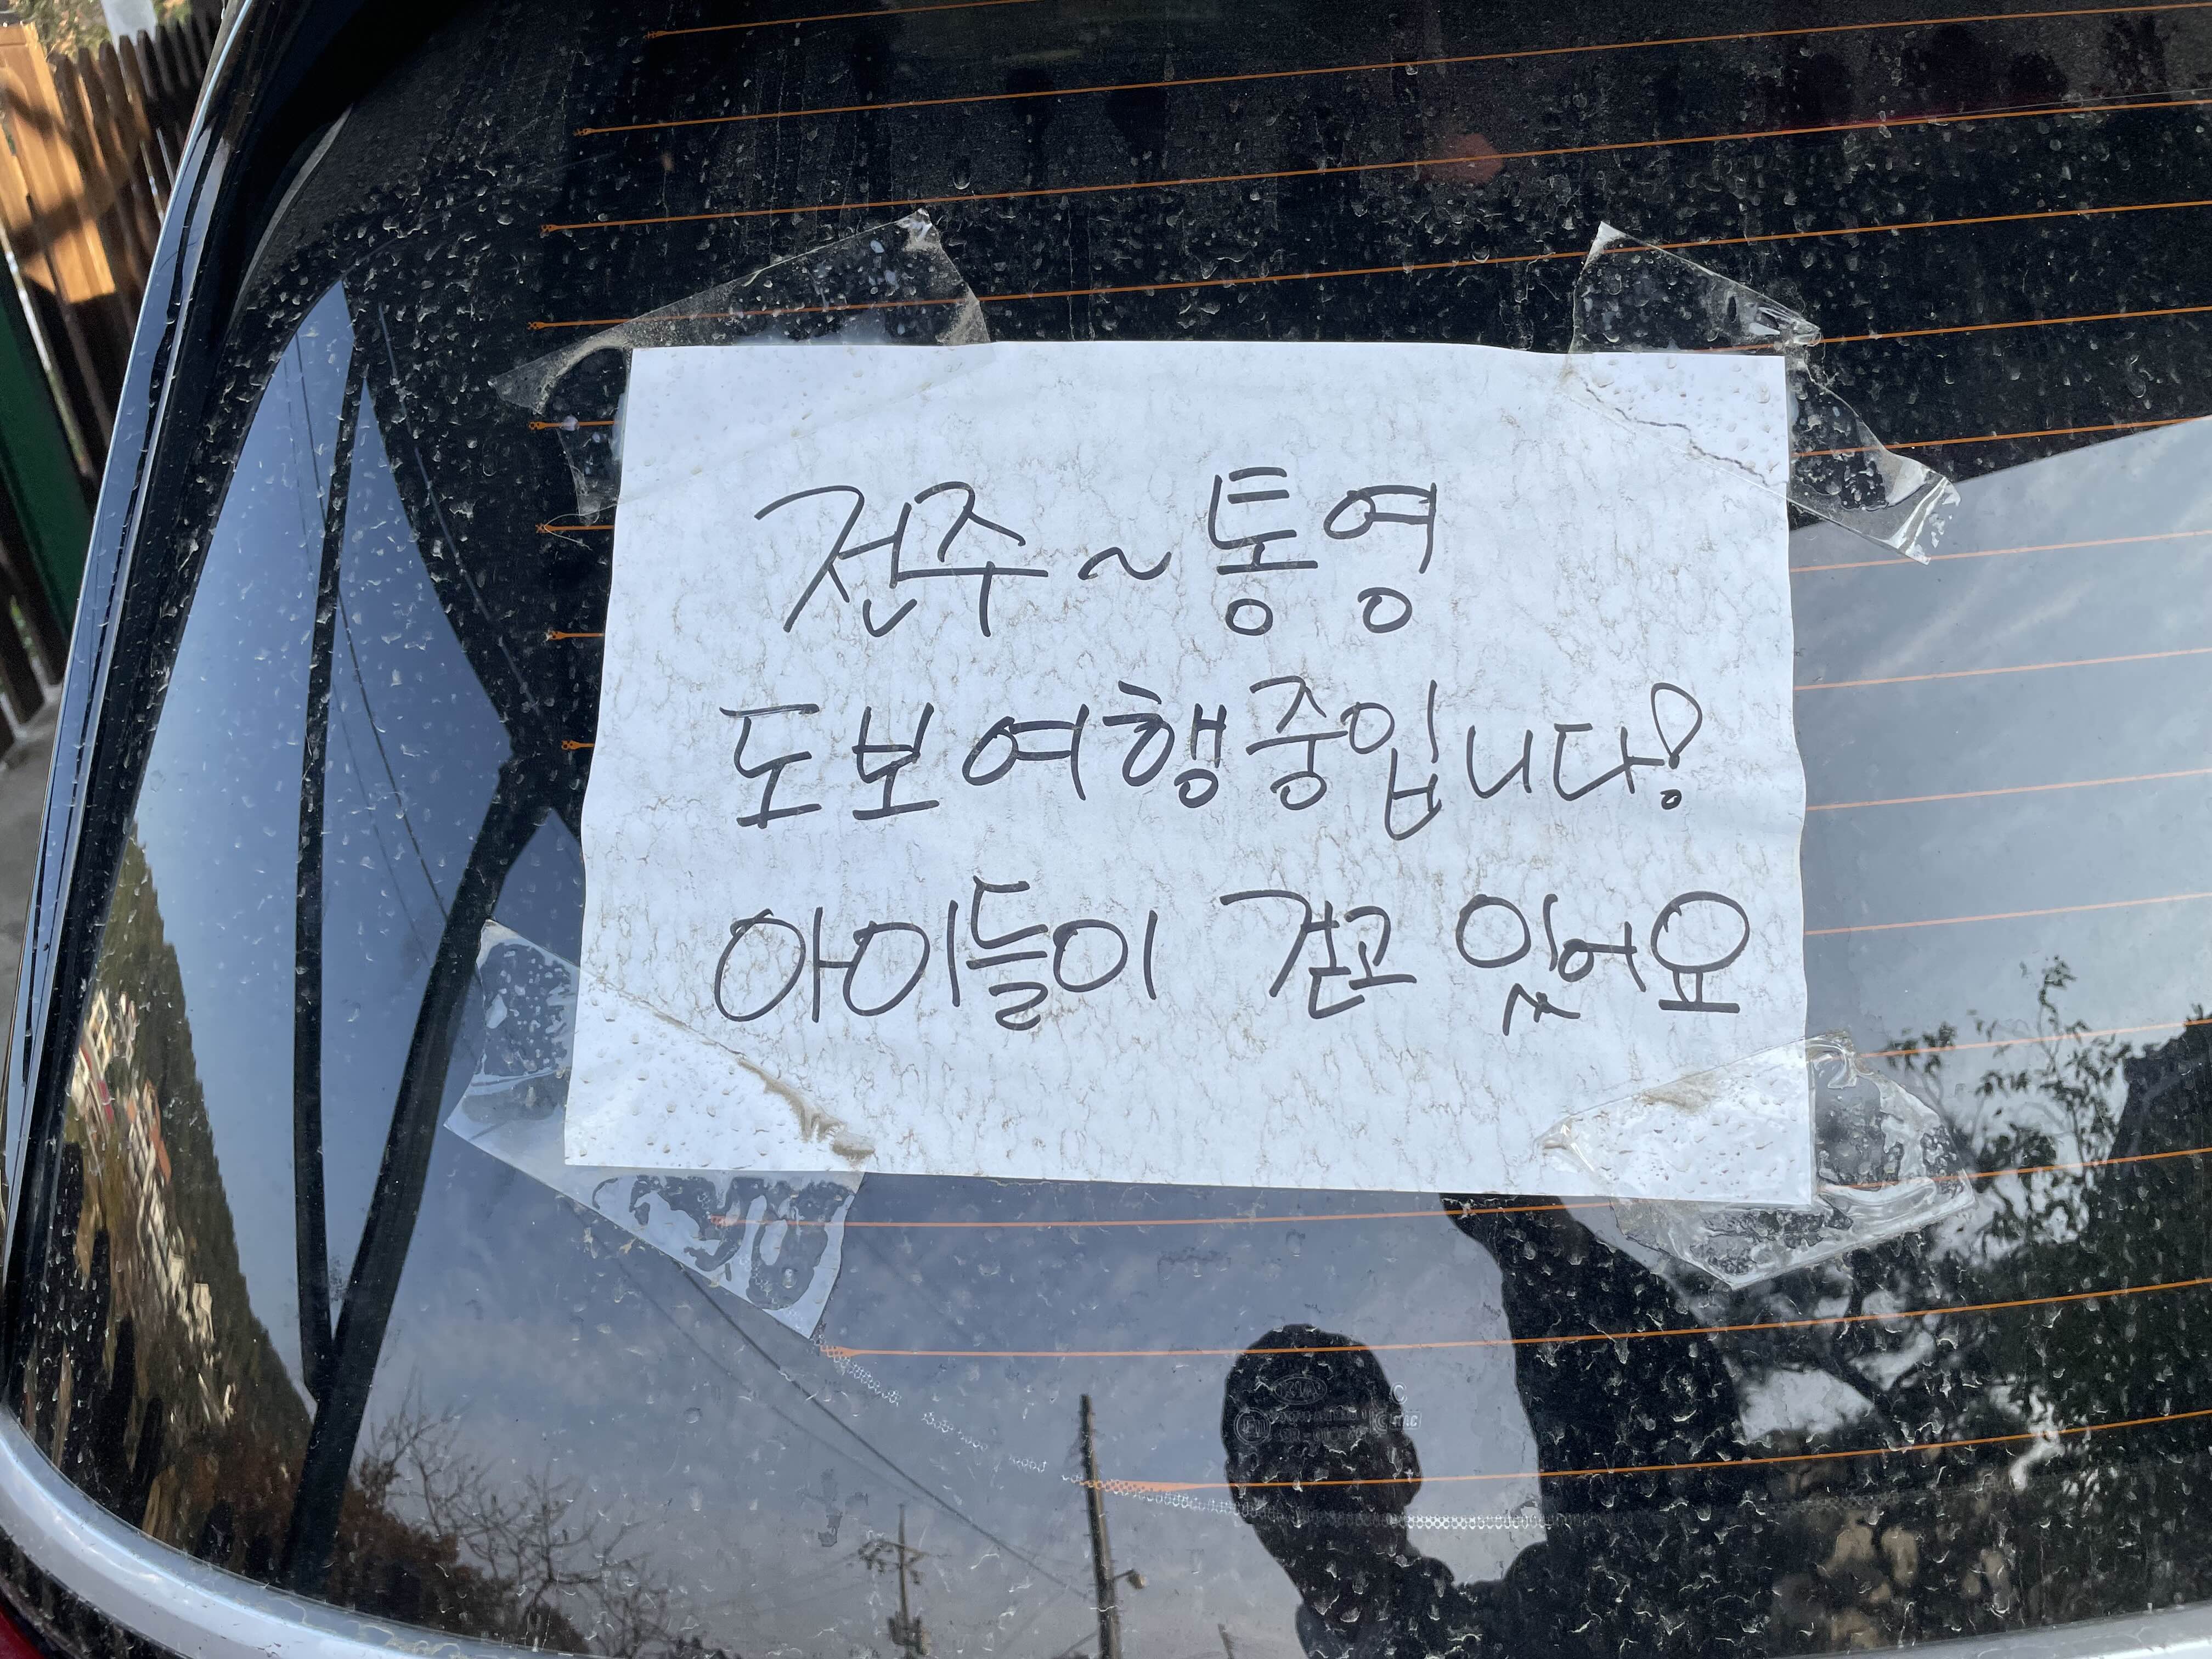 전주~통영
도보여행중입니다!
아이들이 걷고 있어요
KIA